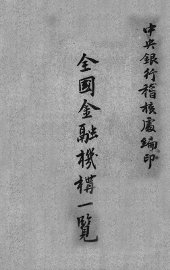 中央銀行稽核處編印
全國金融機構一覽